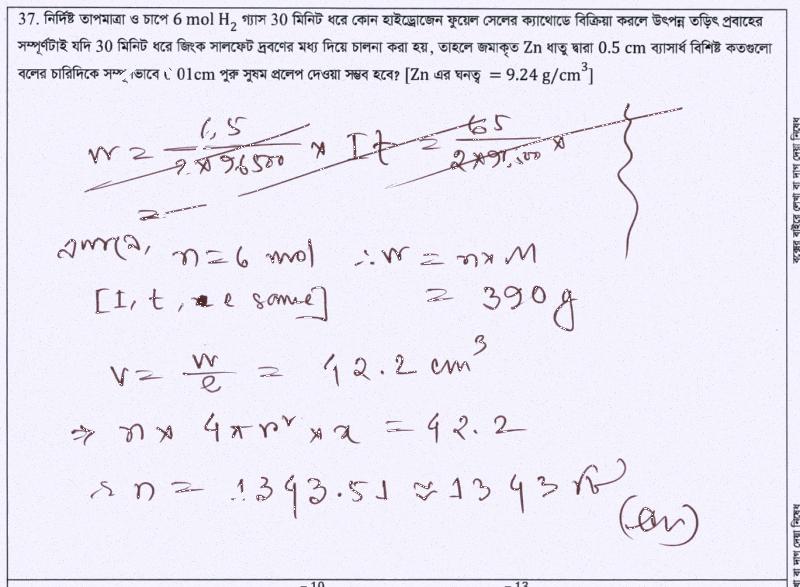 37. নির্দিষ্ট তাপমাত্রা ও চাপে 6 mol H₂ গ্যাস 30 মিনিট ধরে কোন হাইড্রোজেন ফুয়েল সেলের ক্যাথোডে বিক্রিয়া করলে উৎপন্ন তড়িৎ প্রবাহের
সম্পূর্ণটাই যদি 30 মিনিট ধরে জিংক সালফেট দ্রবণের মধ্য দিয়ে চালনা করা হয়, তাহলে জমাকৃত Zn ধাতু দ্বারা 0.5 cm ব্যাসার্ধ বিশিষ্ট কতগুলো
বলের চারিদিকে 01cm পুরু সুষম প্রলেপ দেওয়া সম্ভব হবে? [Zn এর ঘনত্ব = 9.24 g/cm³]
W = 6.5 / 2×96500 × It = 65 / 2×96500 ×
=
n = 6 mol ∴ W = n×M
[I, t, e same] = 390 g
V = W/ρ = 42.2 cm³
⇒ n × 4πr² × x = 42.2
∴ n = 1343.51 ≈ 1343 টি
(Ans)
– 10 – 13